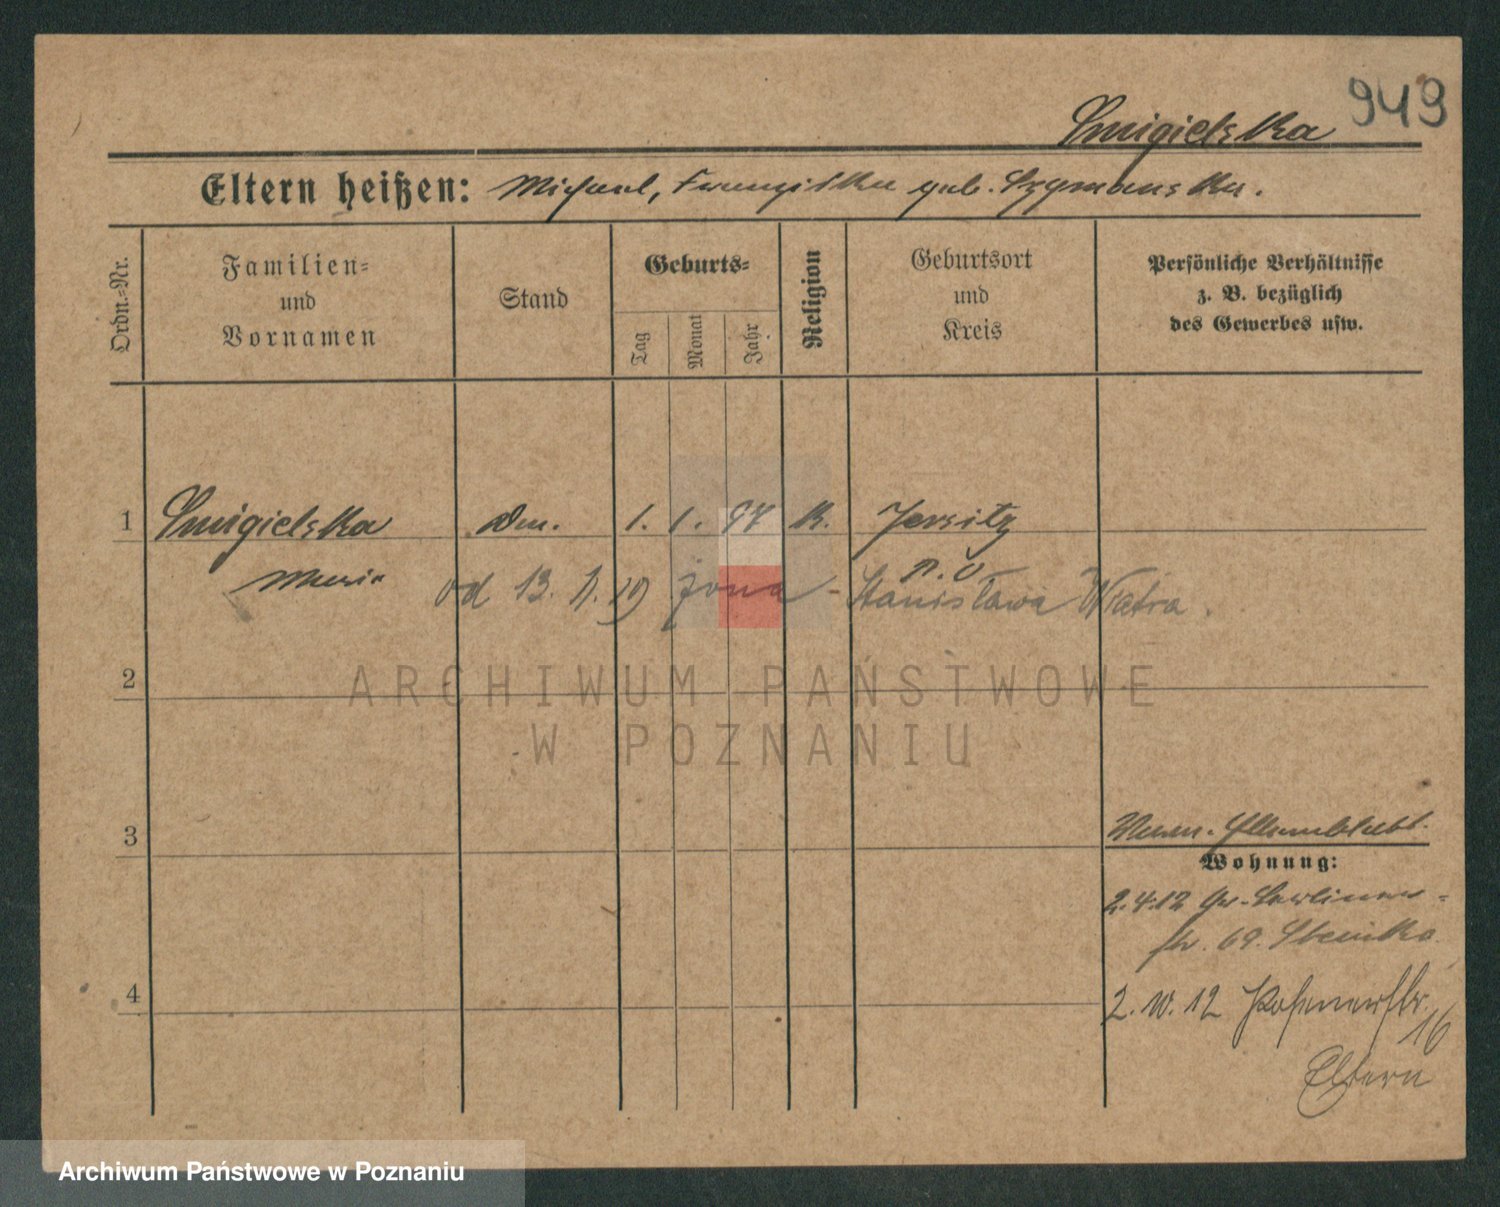 949
Smigielska
Eltern heißen: Michael, Franziska geb. Szymanska.
Ordn.-Nr.
Familien- und Vornamen
Stand
Geburts-
Tag
Monat
Jahr
Religion
Geburtsort und Kreis
Persönliche Verhältnisse z. B. bezüglich des Gewerbes usw.
1 Smigielska 1. 1. 97 k. Jersitz
Maria
od 13. 19 żona - Stanisława Wiatra.
ARCHIWUM PAŃSTWOWE
W POZNANIU
2
3
Wohnung:
2.4.12 Gr. Berliner-
str. 69.
4
2. 10. 12 Posenerstr.
16
Eltern
Archiwum Państwowe w Poznaniu